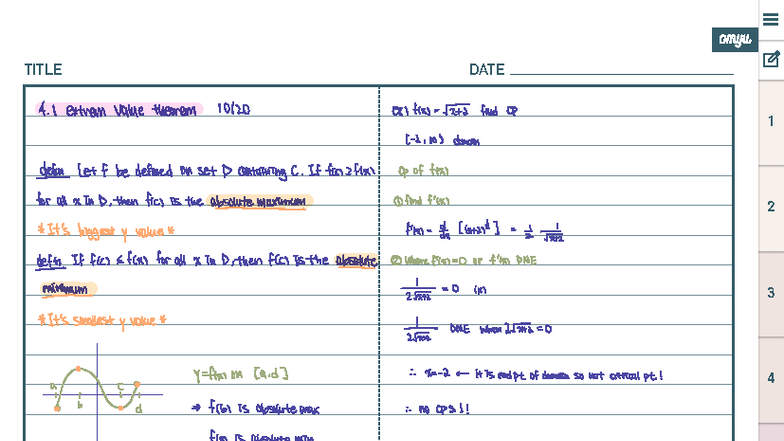 omyu
TITLE
DATE
4.1 extrem value theorem 10/20
defn Let f be defined on set D containing C. If f(c) ≥ f(x)
for all x in D, then f(c) is the absolute maximum
*It's biggest y value*
defn If f(c) ≤ f(x) for all x in D, then f(c) is the absolute
minimum
*It's smallest y value*
a b c d
y=f(x) on [a,d]
→ f(b) is absolute max
f(a) is absolute min
ex) f(x) = √x+2 find CP
[-2, ∞) domain
CP of f(x)
① find f'(x)
f'(x) = d/dx [(x+2)^½] = 1/2 1/√x+2
② Where f'(x)=0 or f'(x) DNE
1/2√x+2 = 0
1/2√x+2 DNE when 2√x+2 = 0
∴ x=-2 ← it is endpt. of domain so not critical pt!
∴ no CPs!!
1
2
3
4